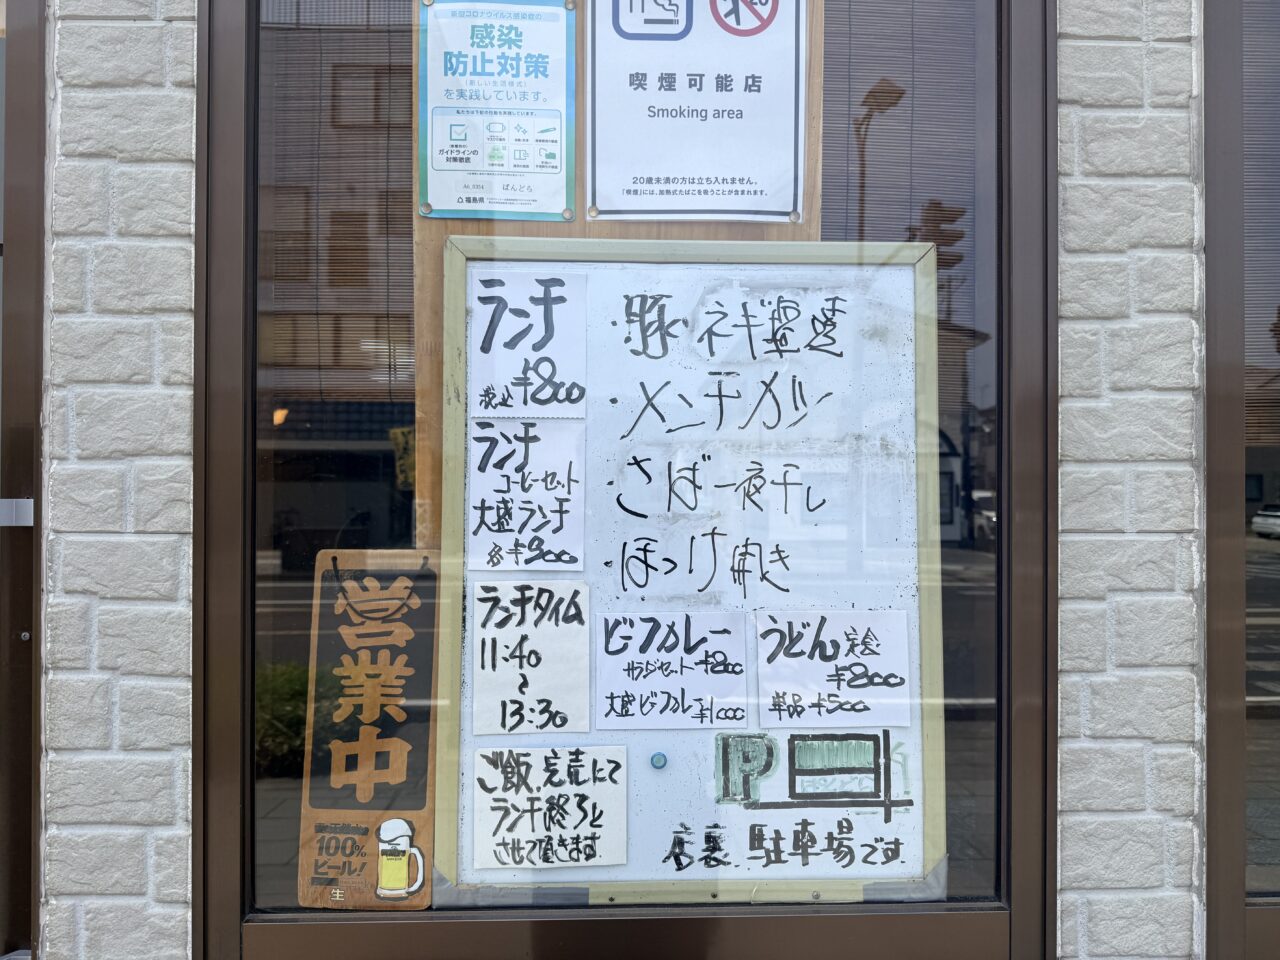 新型コロナウイルス感染症の
感染
防止対策
(新しい生活様式)
を実践しています。
私たちは下記の行動を実践しています。
ガイドラインの
対策徹底
A6_0354 ばんどら
福島県
喫煙可能店
Smoking area
20歳未満の方は立ち入れません。
「喫煙」には、加熱式たばこを吸うことが含まれます。
ランチ
税込 ¥800
ランチ
コーヒーセット
大盛ランチ
各¥900
ランチタイム
11:40
〜
13:30
ご飯、完売にて
ランチ終了と
させて頂きます。
・豚・ネギ塩
・メンチカツ
・さば一夜干し
・ほっけ開き
ビーフカレー
サラダセット ¥800
大盛ビーフカレー ¥1000
うどん定食
¥800
単品 ¥500
P
店裏、駐車場です。
営業中
100%
ビール!
生